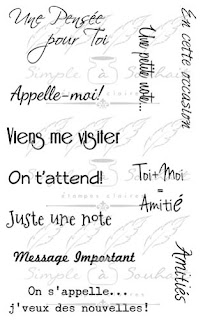 Une Pensée
pour Toi
Une petite note...
En cette occasion
Appelle-moi!
Viens me visiter
On t'attend!
Toi+Moi
=
Amitié
Juste une note
Amitiés
Message Important
On s'appelle...
j'veux des nouvelles!
Simple à Souhait
étampes claires
Simple à Souhait